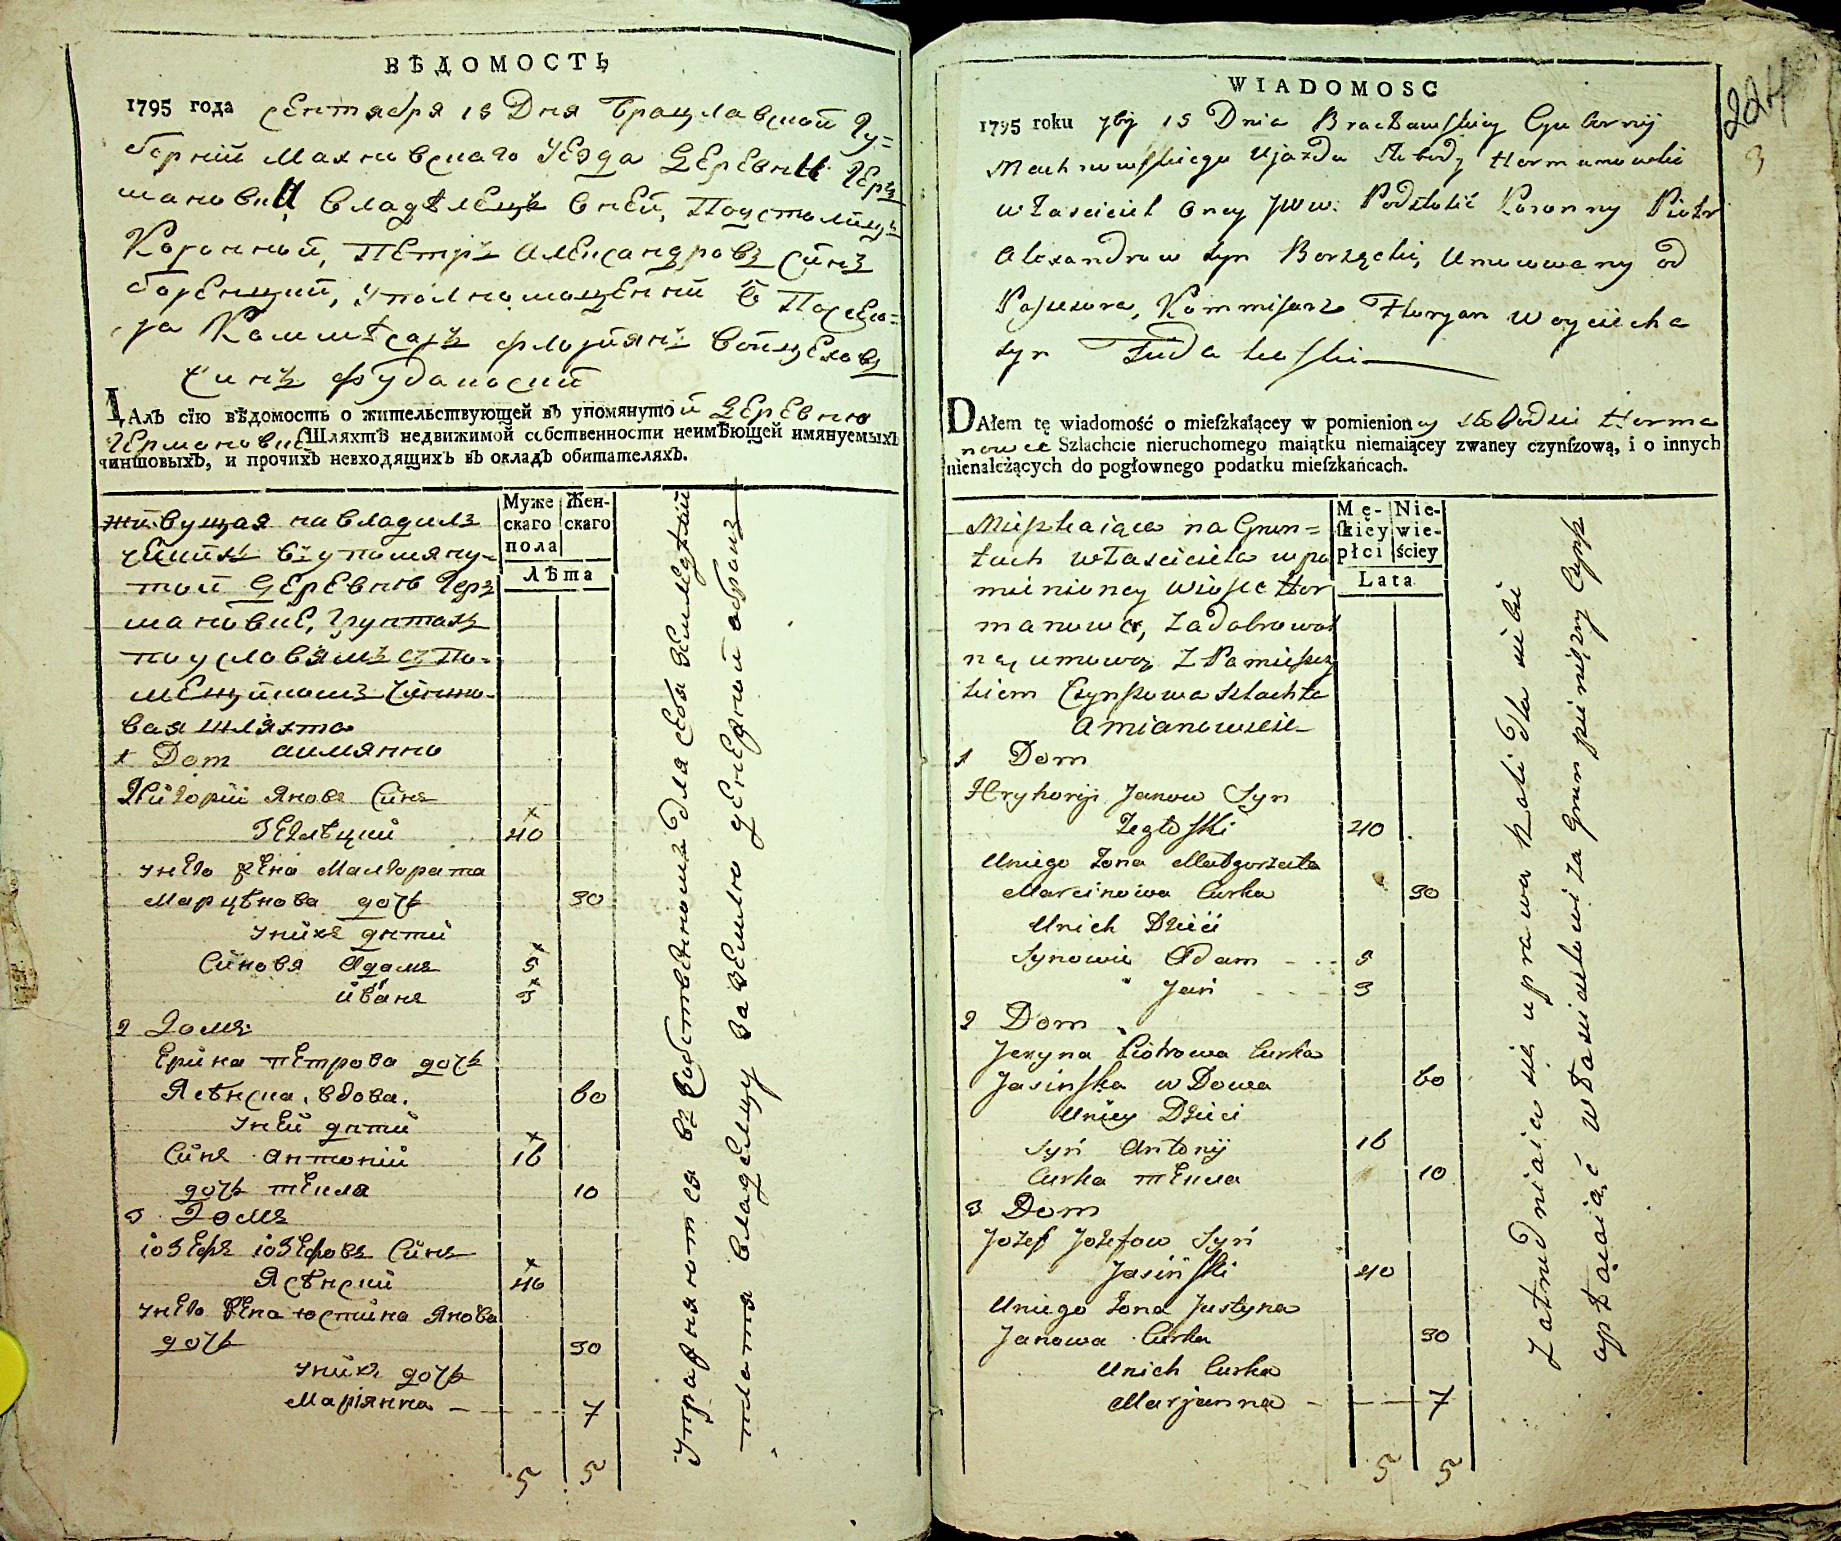 ВѢДОМОСТЬ
1795 года сентября 15 Дня Брацлавской Гу=
берніи Махновскаго Уезда Деревни Гер
мановки Владѣлецъ оней, Подстолиц
Коронной, Петръ Александровъ Синъ
боренцкий, Уполномоценни
ра Коммѣсаръ Флориянъ Войцеховъ
Синъ Фудаковский
ДАлъ сїю вѣдомость о жительствующей въ упомянутой Деревню
Германовке Шляхтѣ недвижимой собственности неимѣющей имянуемыхъ
чиншовыхъ, и прочихъ невходящихъ въ окладъ обитателяхъ.
Муже Жен-
скаго скаго
пола
Лѣта
живущая на владил
ческихъ въ упомяну-
той Деревнѣ Гер
мановке, Грунтахъ
по условіямъ съ По-
мещикомъ Чиншо-
вая шляхта
аимянно
1 Dom
Григорій Яновъ Синъ
Зеглѣцкий 40
унего жена Малгората
Марцѣнова дочь 30
Унихъ дѣти
Синовя Адамъ 5
Иванъ 3
2 Домъ
Ерина Петрова дочь
Ясѣнска, вдова. 60
Уней дѣти
Синъ Антоній 16
дочь текла 10
3 Домъ
іозефъ іозефовъ Синъ
Ясѣнский 40
унего жена юстина Янова
дочь 30
Унихъ дочь
Маріянна - 7
5 5
Упражняются въ Собственномъ для себя земледелии
платя владелцу за землю денежной обракъ
WIADOMOSC
224
3
1795 roku 7bɀ 15 Dnia Bracławskiey Gubernij
Machnowskiego Ujazdu Słobody Hermanowki
właściciel oney JWW. Podstoli Koronny Piotr
Alexandrow syn Borzęcki, Umocowany od
Posesora, Kommisarz Floryan Woyciecha
syn Fudakowski
DAłem tę wiadomość o mieſzkaiącey w pomienioney słobodzie Herma
nowce Szlachcie nieruchomego maiątku niemaiącey zwaney czynſzową, i o innych
nienależących do pogłownego podatku mieſzkańcach.
Mę- Nie-
ſkiey wie-
płci ściey
Lata
Mieszkaiąca na Grun=
tach właściciela wpo
mienioney wiosce Her
manowce, za dobrowol
ną umową z Pamieszcz
kiem Czynszowa szlachta
Amianowicie
1 Dom
Hryhoryi Janow Syn
Zegłoski 40
Uniego żona Małgorzata
Marcinowa Curka 30
Unich Dzieci
Synowie Adam - - - 5
Jan - - - 3
2 Dom
Jeryna Piotrowa Curka
Jasinska wDowa 60
Uniey Dzieci
Syn Antonij 16
Curka текла 10
3 Dom
Jozef Jozefow Syn
Jasinski 40
Uniego żona Justyna
Janowa Curka 30
Unich Curka
Marjanna - - 7
5 5
Zatrudniaią się uprawą Roli dla siebie
opłacaiąc właścicielowi za Grun pieniężny Czynsz